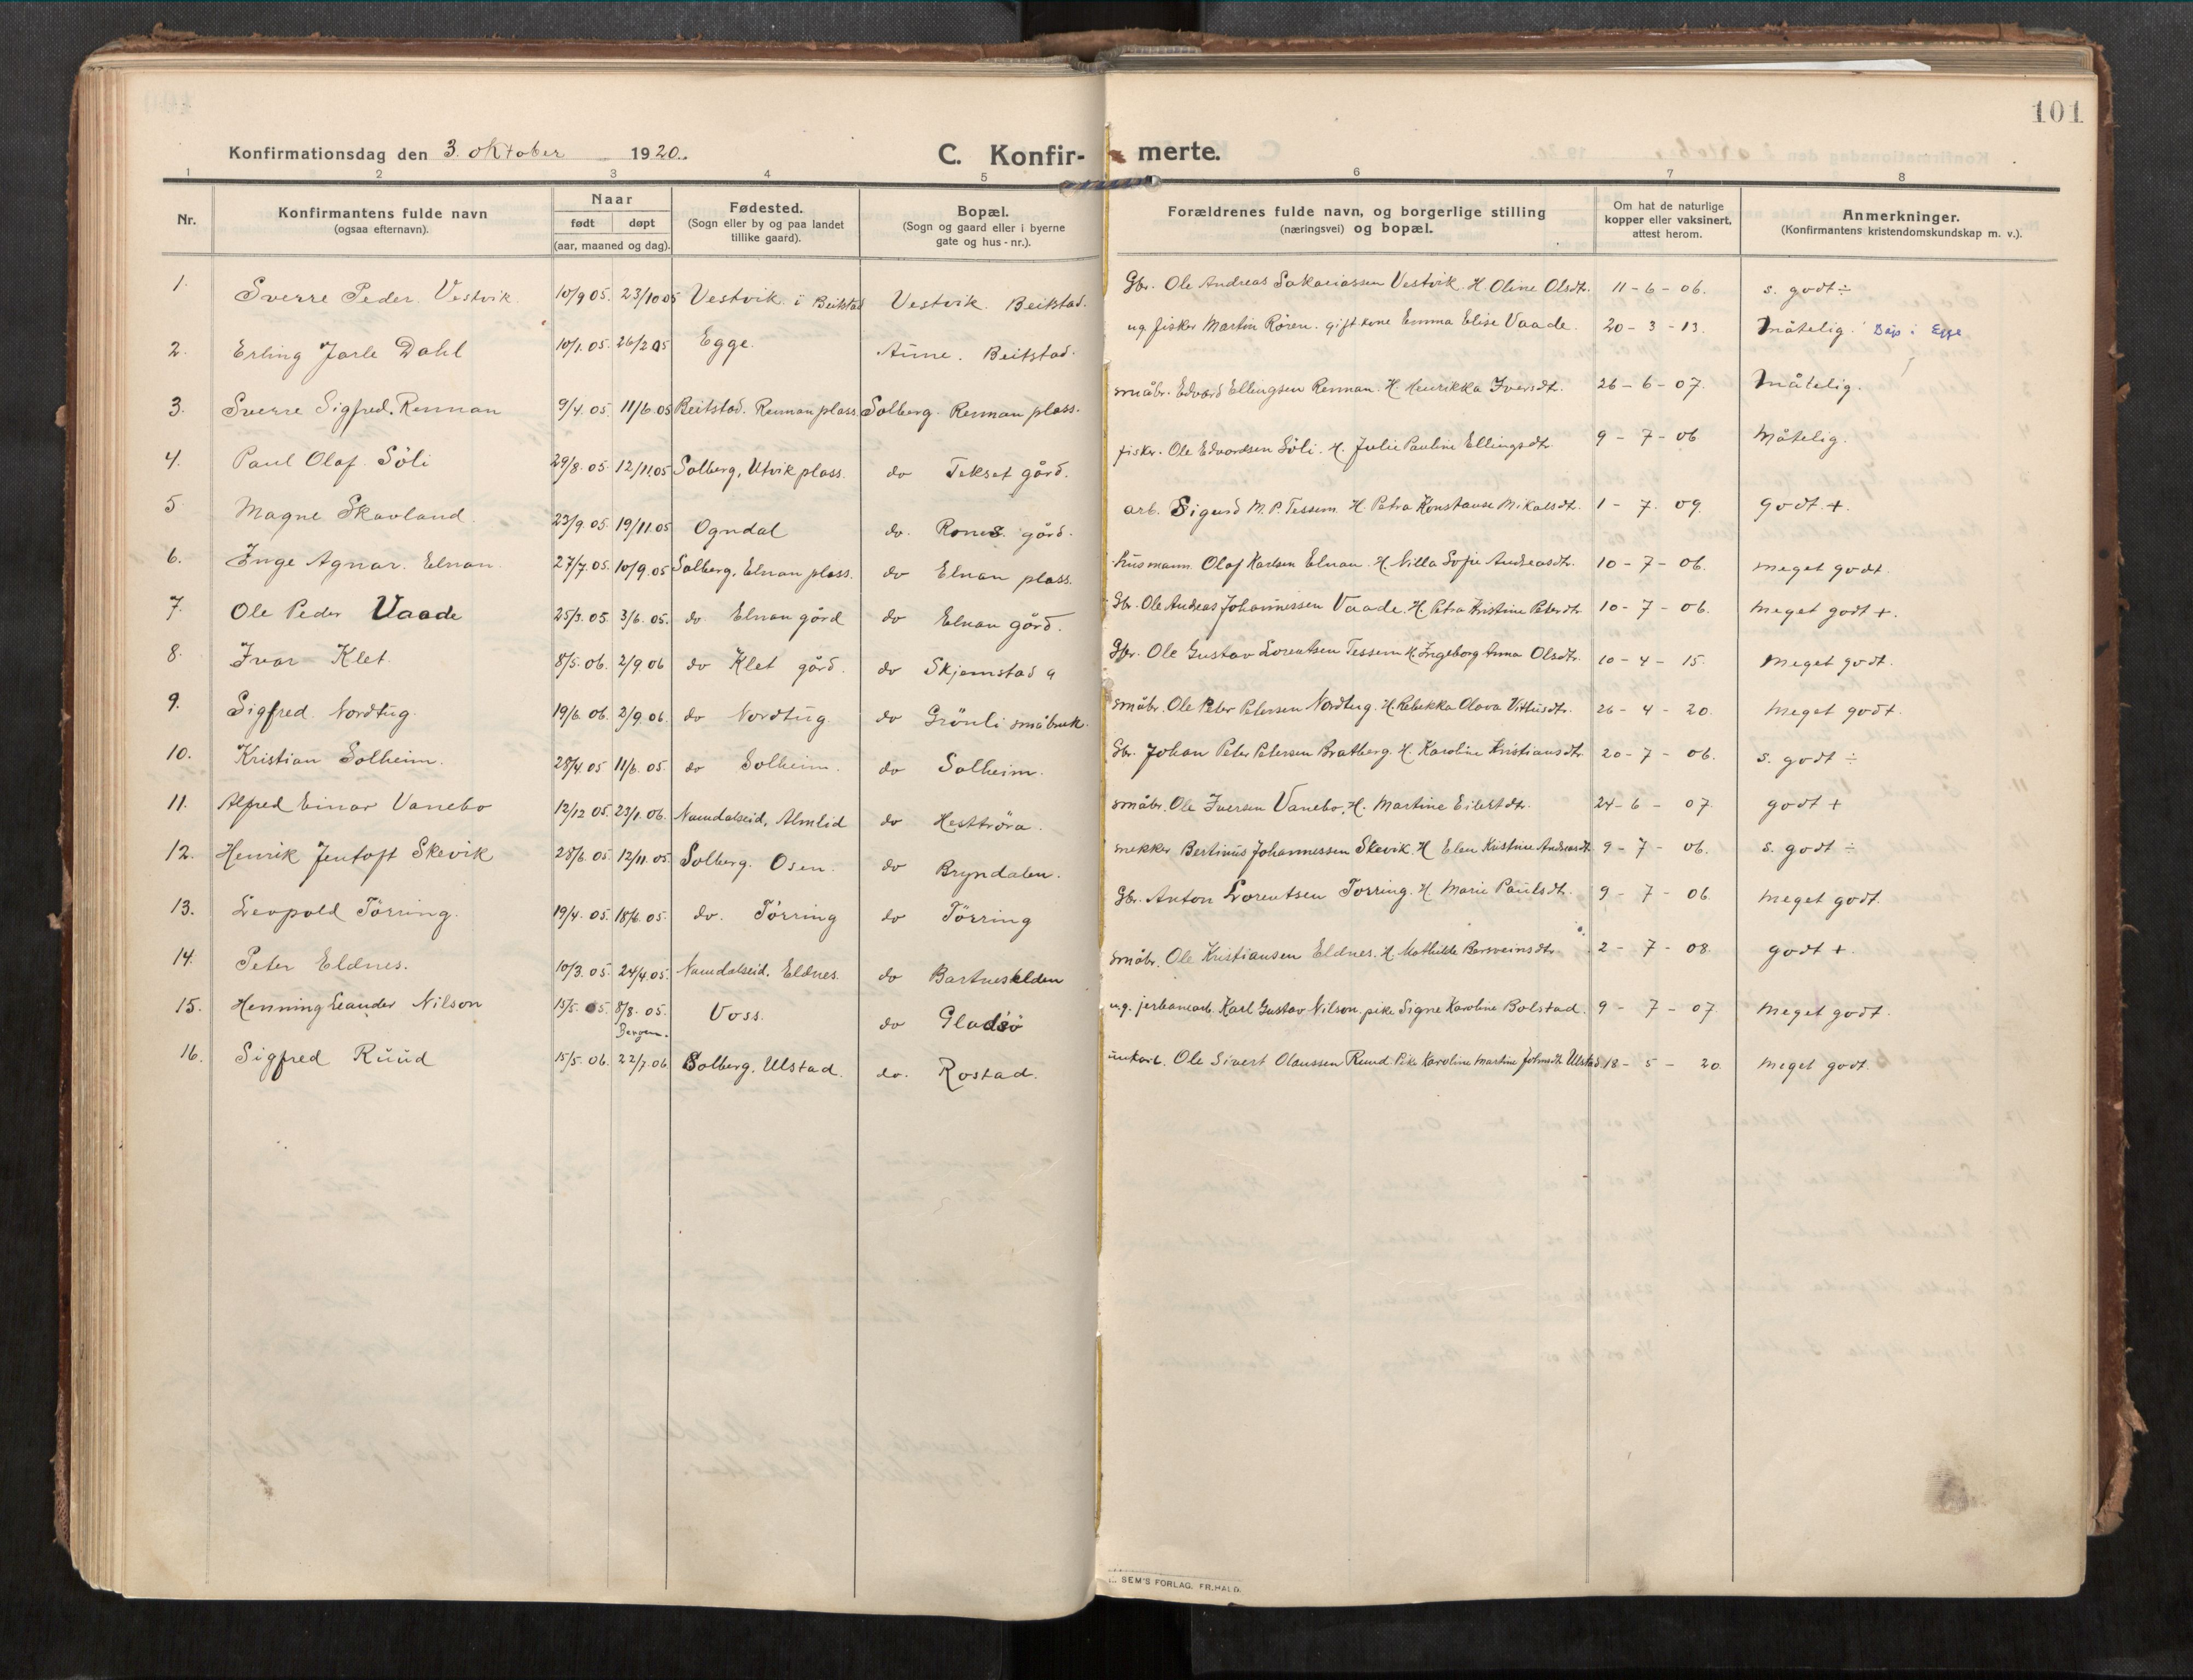 101
Konfirmationsdag den 3. oktober 1920. C. Konfir- merte.
1 2 3 4 5 6 7 8
Nr. Konfirmantens fulde navn (ogsaa efternavn). Naar født døpt (aar, maaned og dag). Fødested. (Sogn eller by og paa landet tillike gaard). Bopæl. (Sogn og gaard eller i byerne gate og hus-nr.). Forældrenes fulde navn, og borgerlige stilling (næringsvei) og bopæl. Om hat de naturlige kopper eller vaksinert, attest herom. Anmerkninger. (Konfirmantens kristendomskundskap m. v.).
1. Sverre Peder Vestvik. 10/9 05. 23/10 05 Vestvik i Beitstad Vestvik. Beitstad. Gbr. Ole Andreas Sakariassen Vestvik. H. Oline Olsdt. 11-6-06. s. godt ÷
2. Erling Jarle Dahl 10/1.05. 26/2 05 Egge. Aune. Beitstad. ug. fisker Martin Røren. gift kone Emma Elise Vaade. 20-3-13. Måtelig. Døp i Egge
3. Sverre Sigfred. Renman 9/4.05. 11/6.05 Beitstad. Renman plass. Solberg. Renman plass. småbr. Edvard Ellingsen Renman. H. Henrikka Iversdt. 26-6-07. Måtelig.
4. Paul Olaf Söli 29/8.05. 12/11.05 Solberg, Utvik plass. do Tekset gård. fisker. Ole Edvardsen Söli. H. Julie Pauline Ellingsdtr. 9-7-06 Måtelig.
5. Magne Skavland. 23/9.05 19/11.05 Ogndal do. Rones gård. arb. Sigurd M. P. Tessem. H. Petra Konstanse Mikalsdt. 1-7-09. godt +.
6. Inge Agnar. Elnan 27/7.05. 10/9.05 Solberg, Elnan plass. do Elnan plass. Husmann. Olaf Karlsen Elnan. H. Nilla Sofie Andreasdt. 10-7-06. meget godt.
7. Ole Peder Vaade 25/3.05. 3/6.05. do Elnan gård do Elnan gård. Gbr. Ole Andreas Johannessen Vaade. H. Petra Kristine Petersdtr 10-7-06. meget godt +.
8. Ivar Klet. 8/5.06. 2/9.06 do Klet gård. do Skjemstad g Gbr. Ole Gustav Lorentsen Tessem H. Ingeborg Anna Olsdt. 10-4-15. Meget godt.
9. Sigfred Nordtug. 19/6.06. 2/9.06. do Nordtug do Grönli småbruk. småbr. Ole Peter Petersen Nordtug. H. Rebekka Olava Vittusdt. 26-4-20. Meget godt.
10. Kristian Solheim. 28/4.05 11/6.05. do Solheim. do Solheim. Gbr. Johan Peter Petersen Bratberg. H. Karoline Kristiansdt. 20-7-06. s. godt ÷
11. Alfred Einar Vanebo 12/12 05. 23/1.06. Namdalseid, Almlid do Hesttröa. småbr. Ole Iversen Vanebo, H. Martine Eilertdt. 24-6-07. godt +
12. Henrik Jentoft Skevik 28/6.05. 12/11.05. Solberg. Osen. do Bryndalen. snekker Bertinus Johannessen Skevik. H. Elen Kristine Andreasdt. 9-7-06. s. godt ÷
13. Leopold Törring. 19/4.05. 18/6.05. do. Törring do Törring Gbr. Anton Lorentsen Torring. H. Marie Paulsdt. 9-7-06. meget godt.
14. Peter Eldnes. 10/3.05. 24/4.05. Namdalseid, Eldnes. do Bartneselden småbr. Ole Kristiansen Eldnes. H. Mathilde Barsveinsdtr. 2-7-08. godt +.
15. Henning Leander Nilson 15/5.05. 8/8.05. Bergen. Voss. do Gladsö ug. jerbanearb. Karl Gustav Nilson. pike Signe Karoline Bolstad. 9-7-07. Meget godt.
16. Sigfred Ruud 15/5.06. 22/7.06. Solberg, Ulstad. do. Rostad. Ole Sivert Olaussen Ruud. Pike Karoline Martine Johnsdt. Ulstad 18-5-20. Meget godt.
SEM'S FORLAG, FR.HALD.